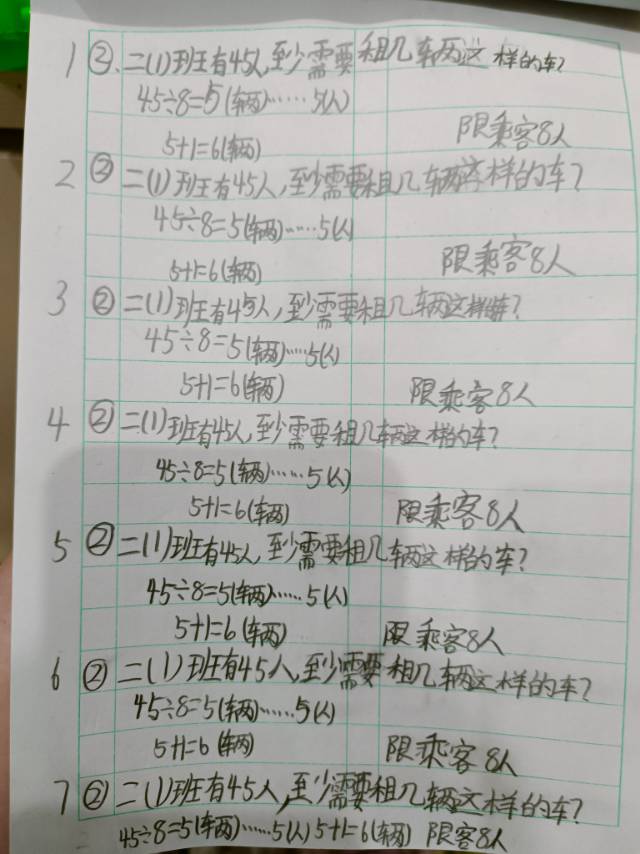 1 ②、二(1)班有45人,至少需要租几辆这样的车?
45÷8=5(辆)……5(人)
5+1=6(辆) 限乘客8人
2 ② 二(1)班有45人,至少需要租几辆这样的车?
45÷8=5(辆)……5(人)
5+1=6(辆) 限乘客8人
3 ② 二(1)班有45人,至少需要租几辆这样的车?
45÷8=5(辆)……5(人)
5+1=6(辆) 限乘客8人
4 ② 二(1)班有45人,至少需要租几辆这样的车?
45÷8=5(辆)……5(人)
5+1=6(辆) 限乘客8人
5 ② 二(1)班有45人,至少需要租几辆这样的车?
45÷8=5(辆)……5(人)
5+1=6(辆) 限乘客8人
6 ② 二(1)班有45人,至少需要租几辆这样的车?
45÷8=5(辆)……5(人)
5+1=6(辆) 限乘客8人
7 ② 二(1)班有45人,至少需要租几辆这样的车?
45÷8=5(辆)……5(人) 5+1=6(辆) 限客8人